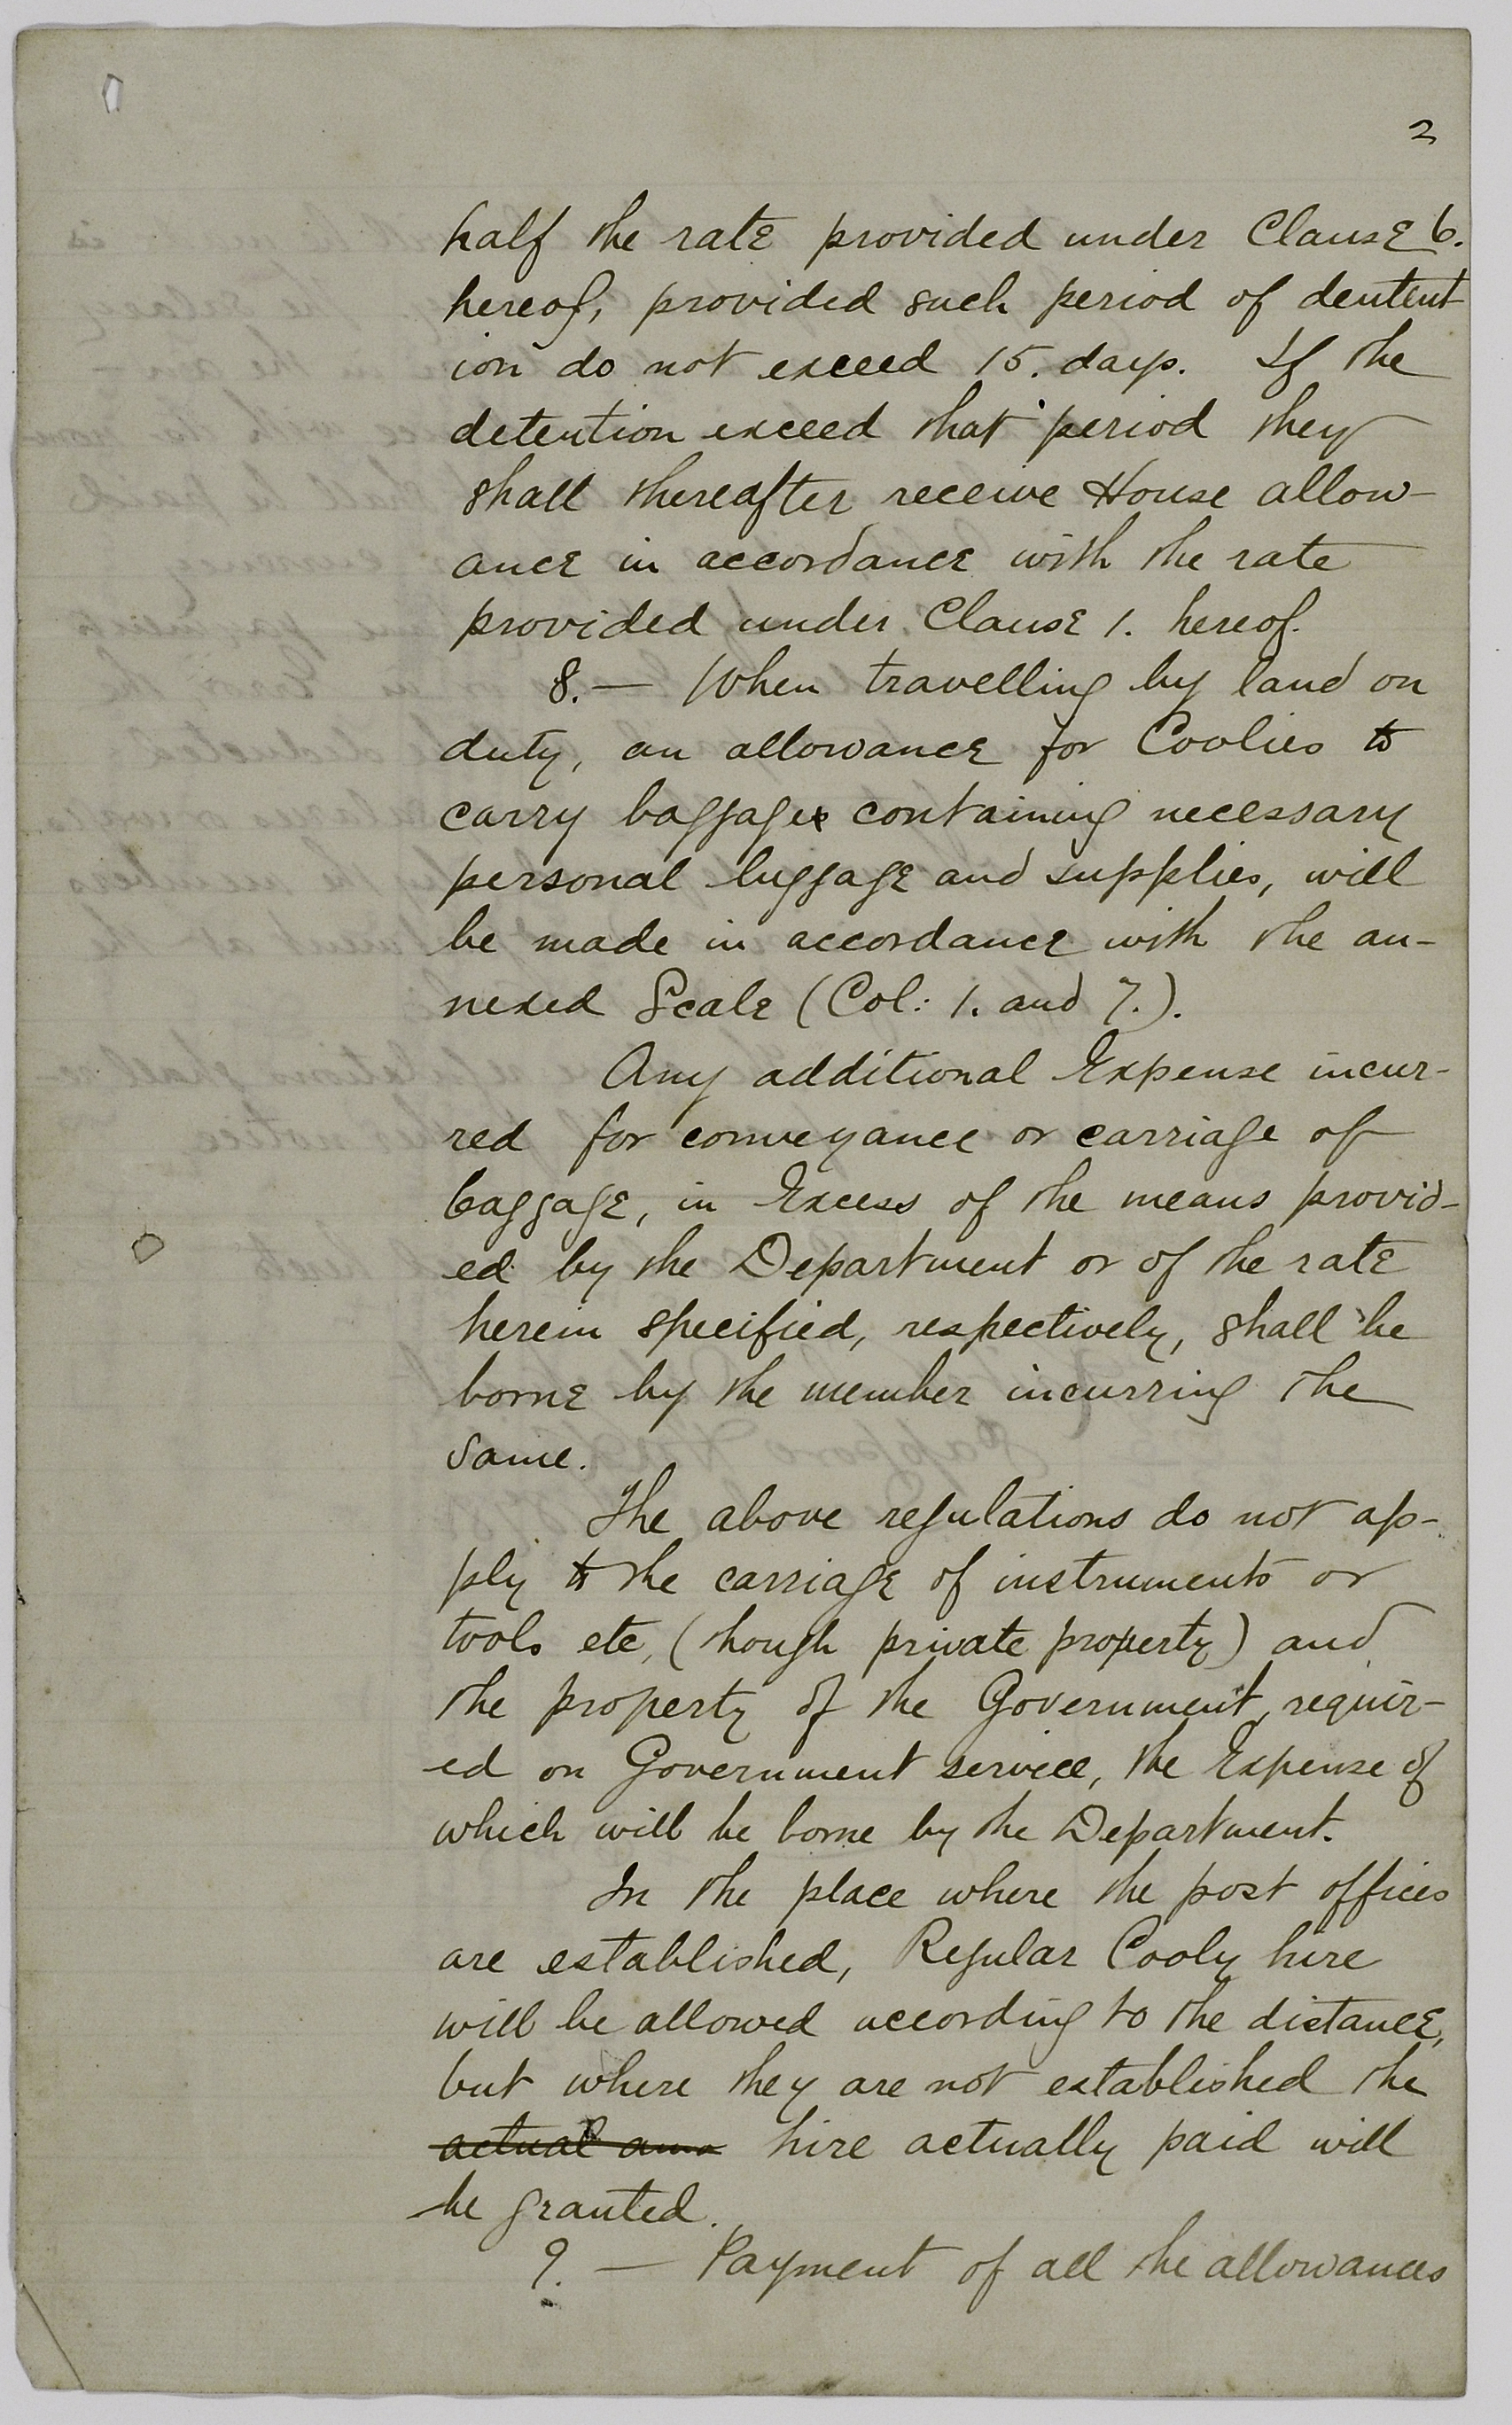 2
half the rate provided under Clause 6.
hereof, provided such period of dentent
ion do not exceed 15. days. If the
detention exceed that period they
shall thereafter receive House allow-
ance in accordance with the rate
provided under Clause 1. hereof.
8.— When travelling by land on
duty, an allowance for Coolies to
carry baggages containing necessary
personal luggage and supplies, will
be made in accordance with the an-
nexed Scale (Col: 1. and 7.).
Any additional Expense incur-
red for conveyance or carriage of
baggage, in Excess of the means provid-
ed by the Department or of the rate
herein specified, respectively, shall be
borne by the member incurring the
same.
The above regulations do not ap-
ply to the carriage of instruments or
tools etc, (though private property) and
the property of the Government, requir-
ed on Government service, the Expense of
which will be borne by the Department.
In the place where the post offices
are established, Regular Cooly hire
will be allowed according to the distance,
but where they are not established the
actual hire actually paid will
be granted.
9. — Payment of all the allowances